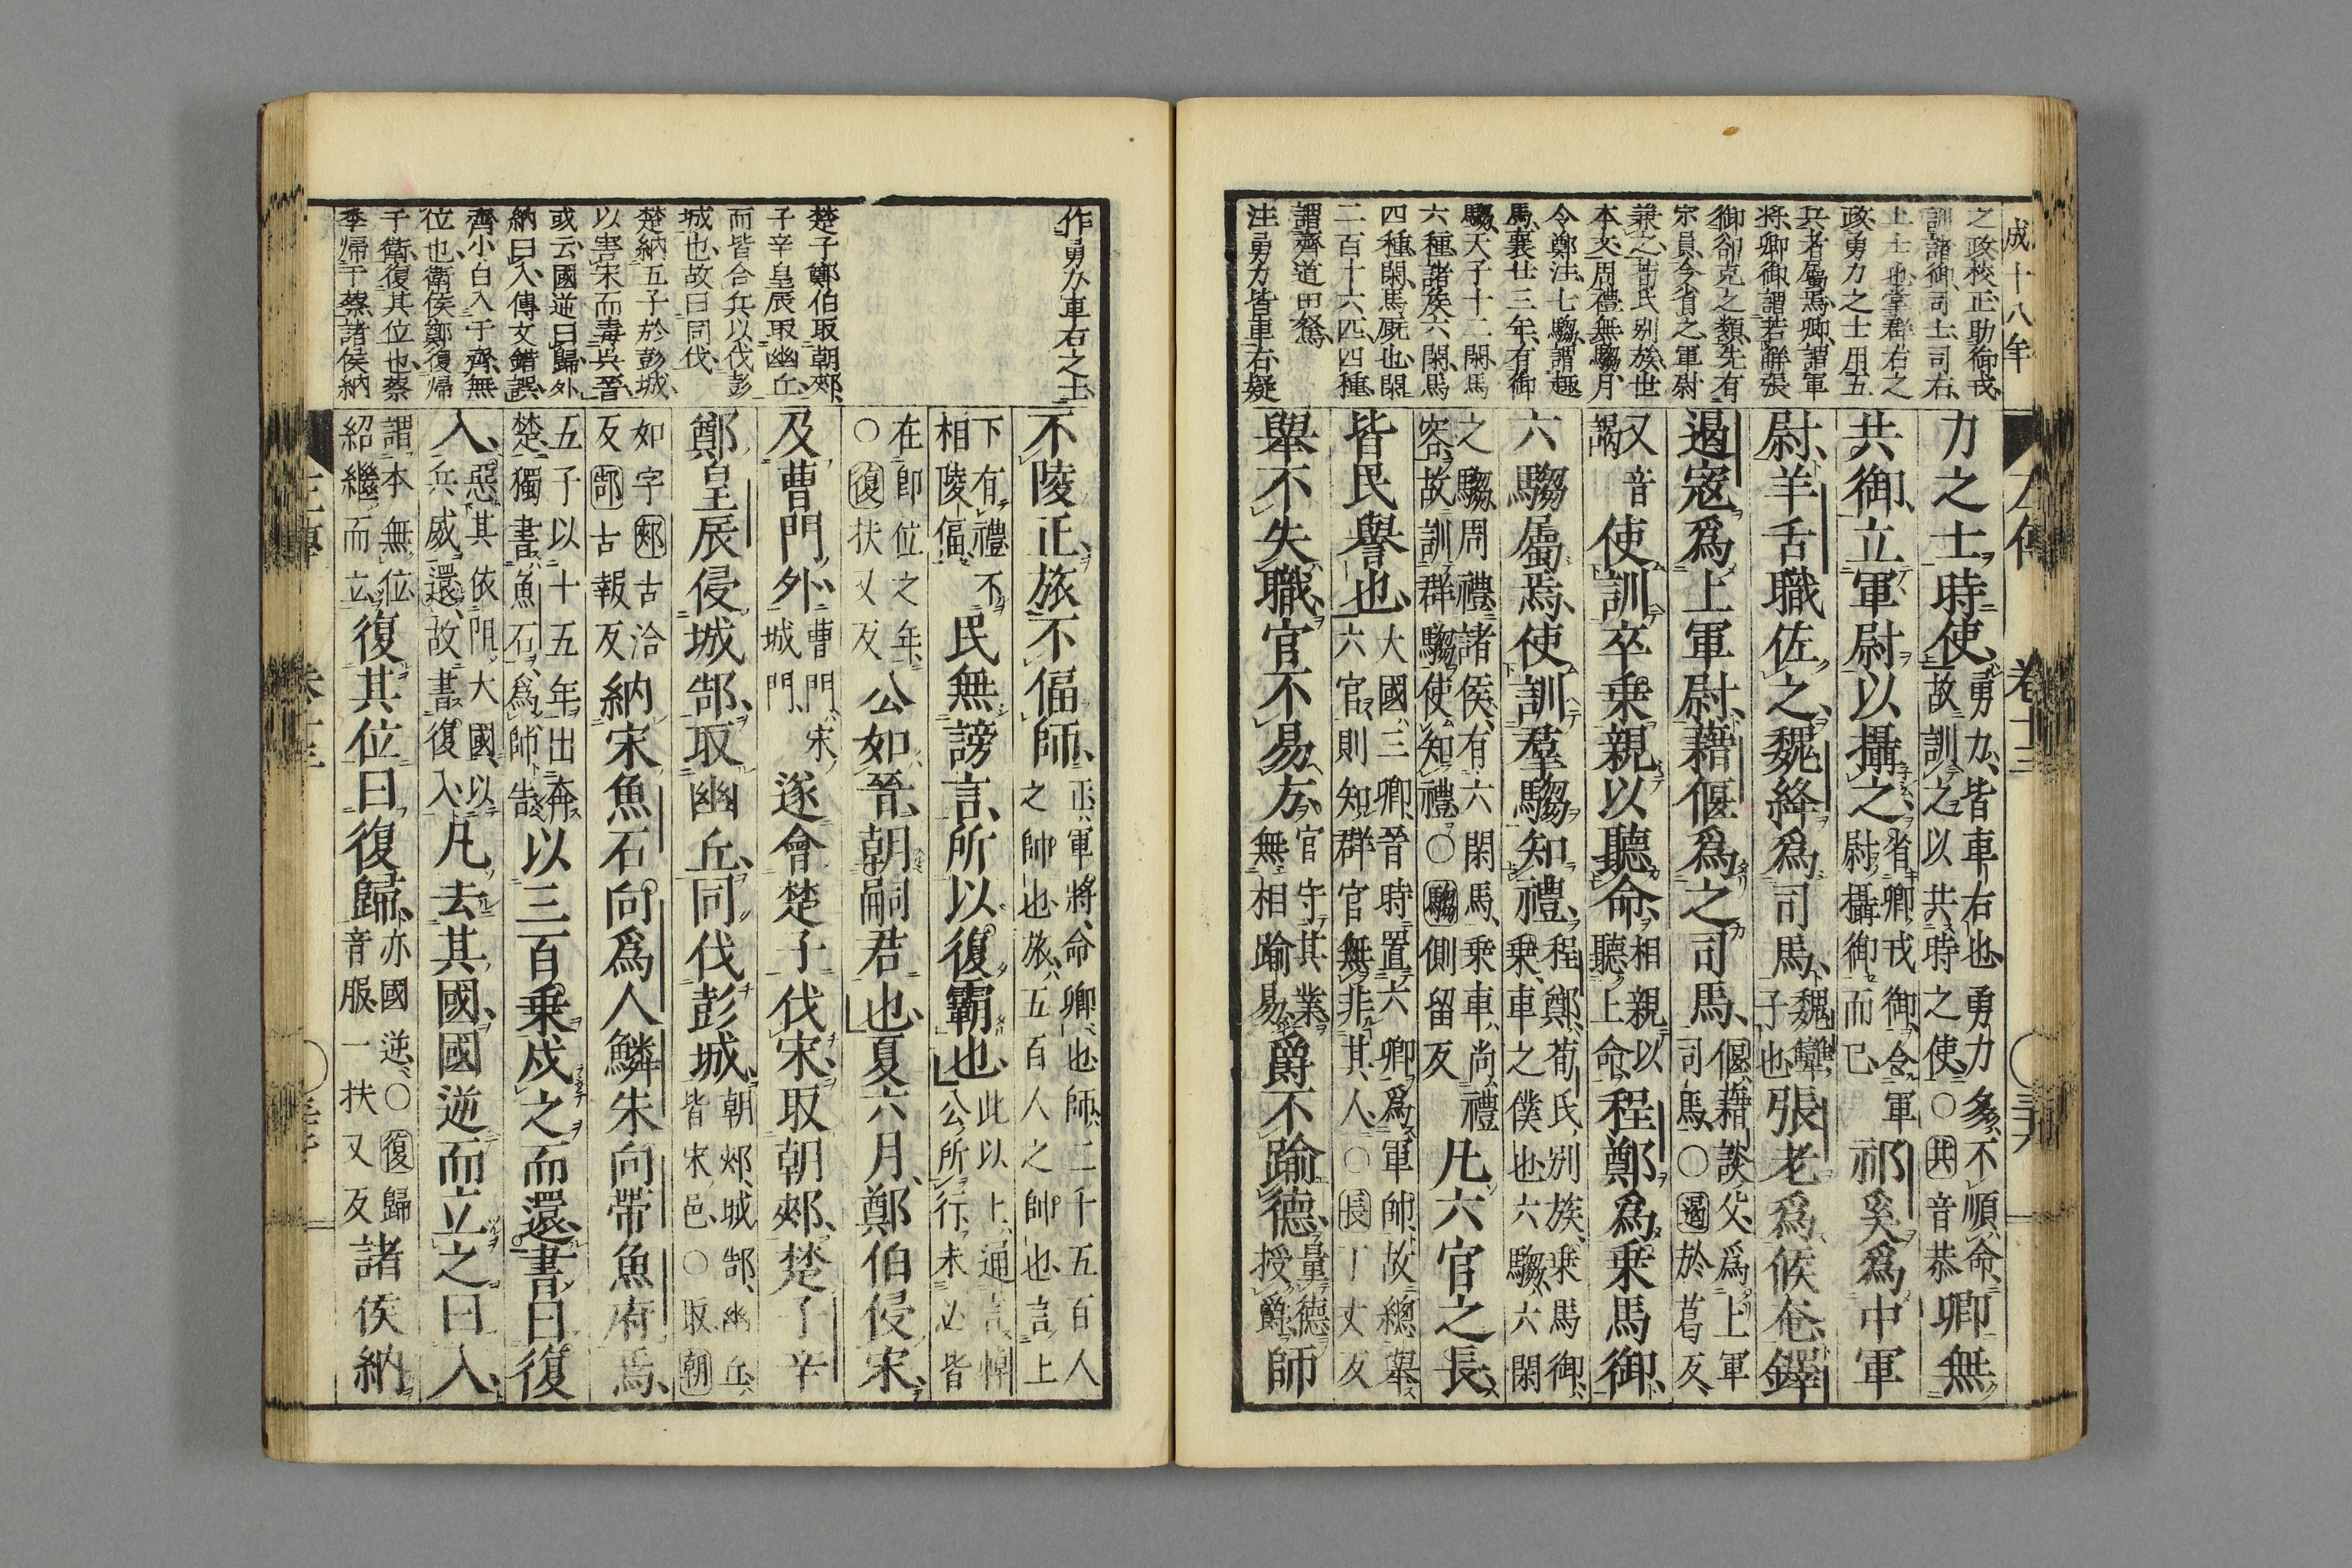 成十八年
之政校正助御戎
訓諸御司士司右
上士也掌群右之
政勇力之士用五
兵者屬焉卿謂軍
將卿御謂若觧張
御郤克之類先有
宗員今省之軍尉
兼之皆氏别族世
本文周禮無騶月
令鄭注七騶謂趣
馬襄廿三年有御
騶天子十二閑馬
六種諸侯六閑馬
四種閑馬厩也閑
二百十六匹四種
謂齊道田駑
注勇力皆車右疑
左傳 卷十三
力之士時使勇力皆車右也勇力多不順命
故訓之以共時之使○共音恭卿無
共御立軍尉以攝之省卿戎御令軍
尉攝御而已祁奚爲中軍
尉羊舌職佐之魏絳爲司馬魏犨
子也張老爲候奄鐸
遏寇爲上軍尉藉偃爲之司馬偃藉談父爲上軍
司馬○遏於葛反
又音
謁使訓卒乗親以聽命相親以
聽上命程鄭爲乗馬御
六騶屬焉使訓羣騶知禮程鄭荀氏别族乗馬御
乗車之僕也六騶六閑
之騶周禮諸侯有六閑馬乗車尚禮
容故訓群騶使知禮○騶側留反凡六官之長
皆民譽也大國三卿晉時置六卿爲軍帥故總舉
六官則知群官無非其人○長丁丈反
舉不失職官不易方官守其業
無相踰易爵不踰德量德
授爵師
作勇力車右之士
楚子鄭伯取朝郟
子辛皇辰取幽丘
而皆合兵以伐彭
城也故曰同伐
楚納五子於彭城
以害宋而毒吳晉
或云國逆曰歸外
納曰入傳文錯誤
齊小白入于齊無
位也衛侯鄭復帰
于衛復其位也蔡
季帰于蔡諸侯納
不陵正旅不偪師正軍將命卿也師二千五百人
之帥也旅五百人之帥也言上
下有禮不
相陵偪民無謗言所以復霸也此以上通言悼
公所行未必皆
在卽位之年
○復扶又反公如晉朝嗣君也夏六月鄭伯侵宋
及曹門外曹門宋
城門遂會楚子伐宋取朝郟楚子辛
鄭皇辰侵城郜取幽丘同伐彭城朝郟城郜幽丘
皆宋邑○取朝
如字郟古洽
反郜古報反納宋魚石向爲人鱗朱向帶魚府焉
五子以十五年出奔
楚獨書魚石爲帥告以三百乗戍之而還書曰復
入惡其依阻大國以
兵威還故書復入凡去其國國逆而立之曰入
謂本無位
紹繼而立復其位曰復歸亦國逆○復歸
音服一扶又反諸侯納